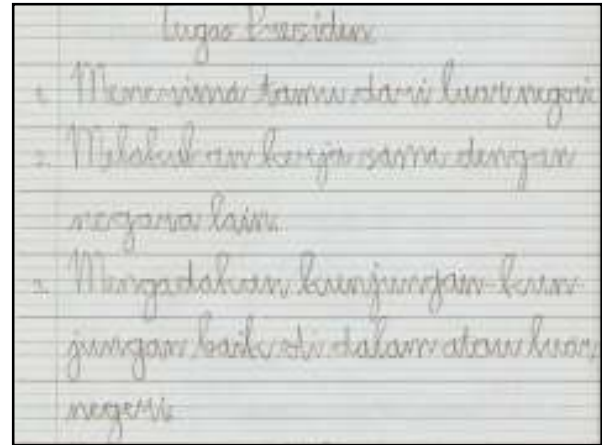 Tugas Presiden
1. Menerima tamu dari luar negeri
2. Melakukan kerja sama dengan
negara lain.
3. Mengadakan kunjungan-kun
jungan baik di dalam atau luar
negeri.